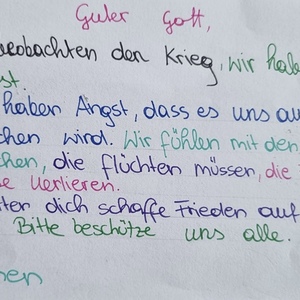 Guter Gott,
beobachten den Krieg, wir habe
st.
haben Angst, dass es uns au
chen wird. Wir fühlen mit den
chen, die flüchten müssen, die
e verlieren.
ten dich schaffe Frieden auf
Bitte beschütze uns alle.
men